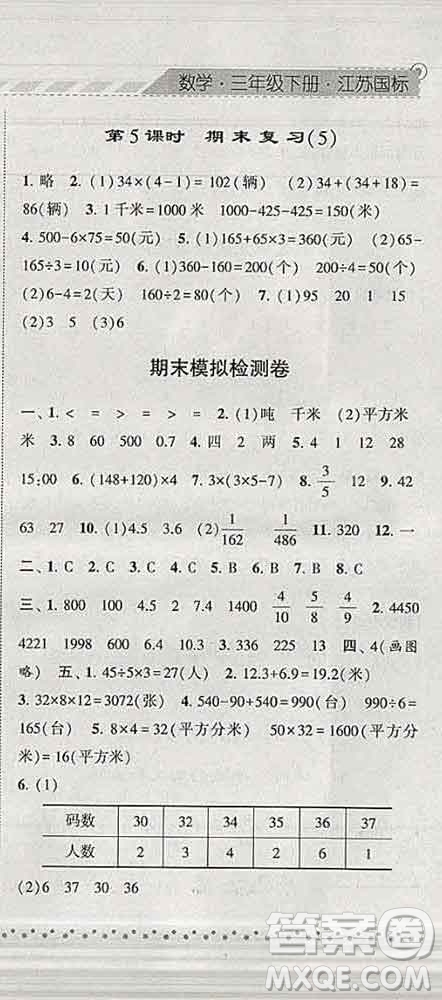 数学·三年级下册·江苏国标
第5课时 期末复习(5)
1.略 2.(1)34×(4-1)=102(辆) (2)34+(34+18)=
86(辆) 3.1千米=1000米 1000-425-425=150(米)
4.500-6×75=50(元) 5.(1)165+65×3=360(元) (2)65-
165÷3=10(元) 6.(1)360-160=200(个) 200÷4=50(个)
(2)6-4=2(天) 160÷2=80(个) 7.(1)95 20 1 15
(2)3 5 (3)6
期末模拟检测卷
一、1.< = > = > = 2.(1)吨 千米 (2)平方米
米 3.8 60 500 0.7 4.四 2 两 5.4 1 12 28
15:00 6.(148+120)×4 7.3×(3×5-7) 8.3/5 12 9.42
63 27 10.(1)4.5 3.6 (2)1/162 1/486 11.320 12.一
二、1.C 2.C 3.C 4.C 5.B 6.B 7.B 8.C
三、1.800 100 4.5 2.7 2.4 1400 4/10 5/8 4/9 2.4450
4221 1998 600 0.9 9.3 3.336 225 13 四、4(画图
略) 五、1.45÷5×3=27(人) 2.12.3+6.9=19.2(米)
3.32×8×12=3072(张) 4.540-90+540=990(台) 990÷6=
165(台) 5.8×4=32(平方分米) 50×32=1600(平方分
米)=16(平方米)
6.(1)
码数 30 32 34 35 36 37
人数 2 3 4 2 6 1
(2)6 37 30 36
答案卷
MXQE.COM